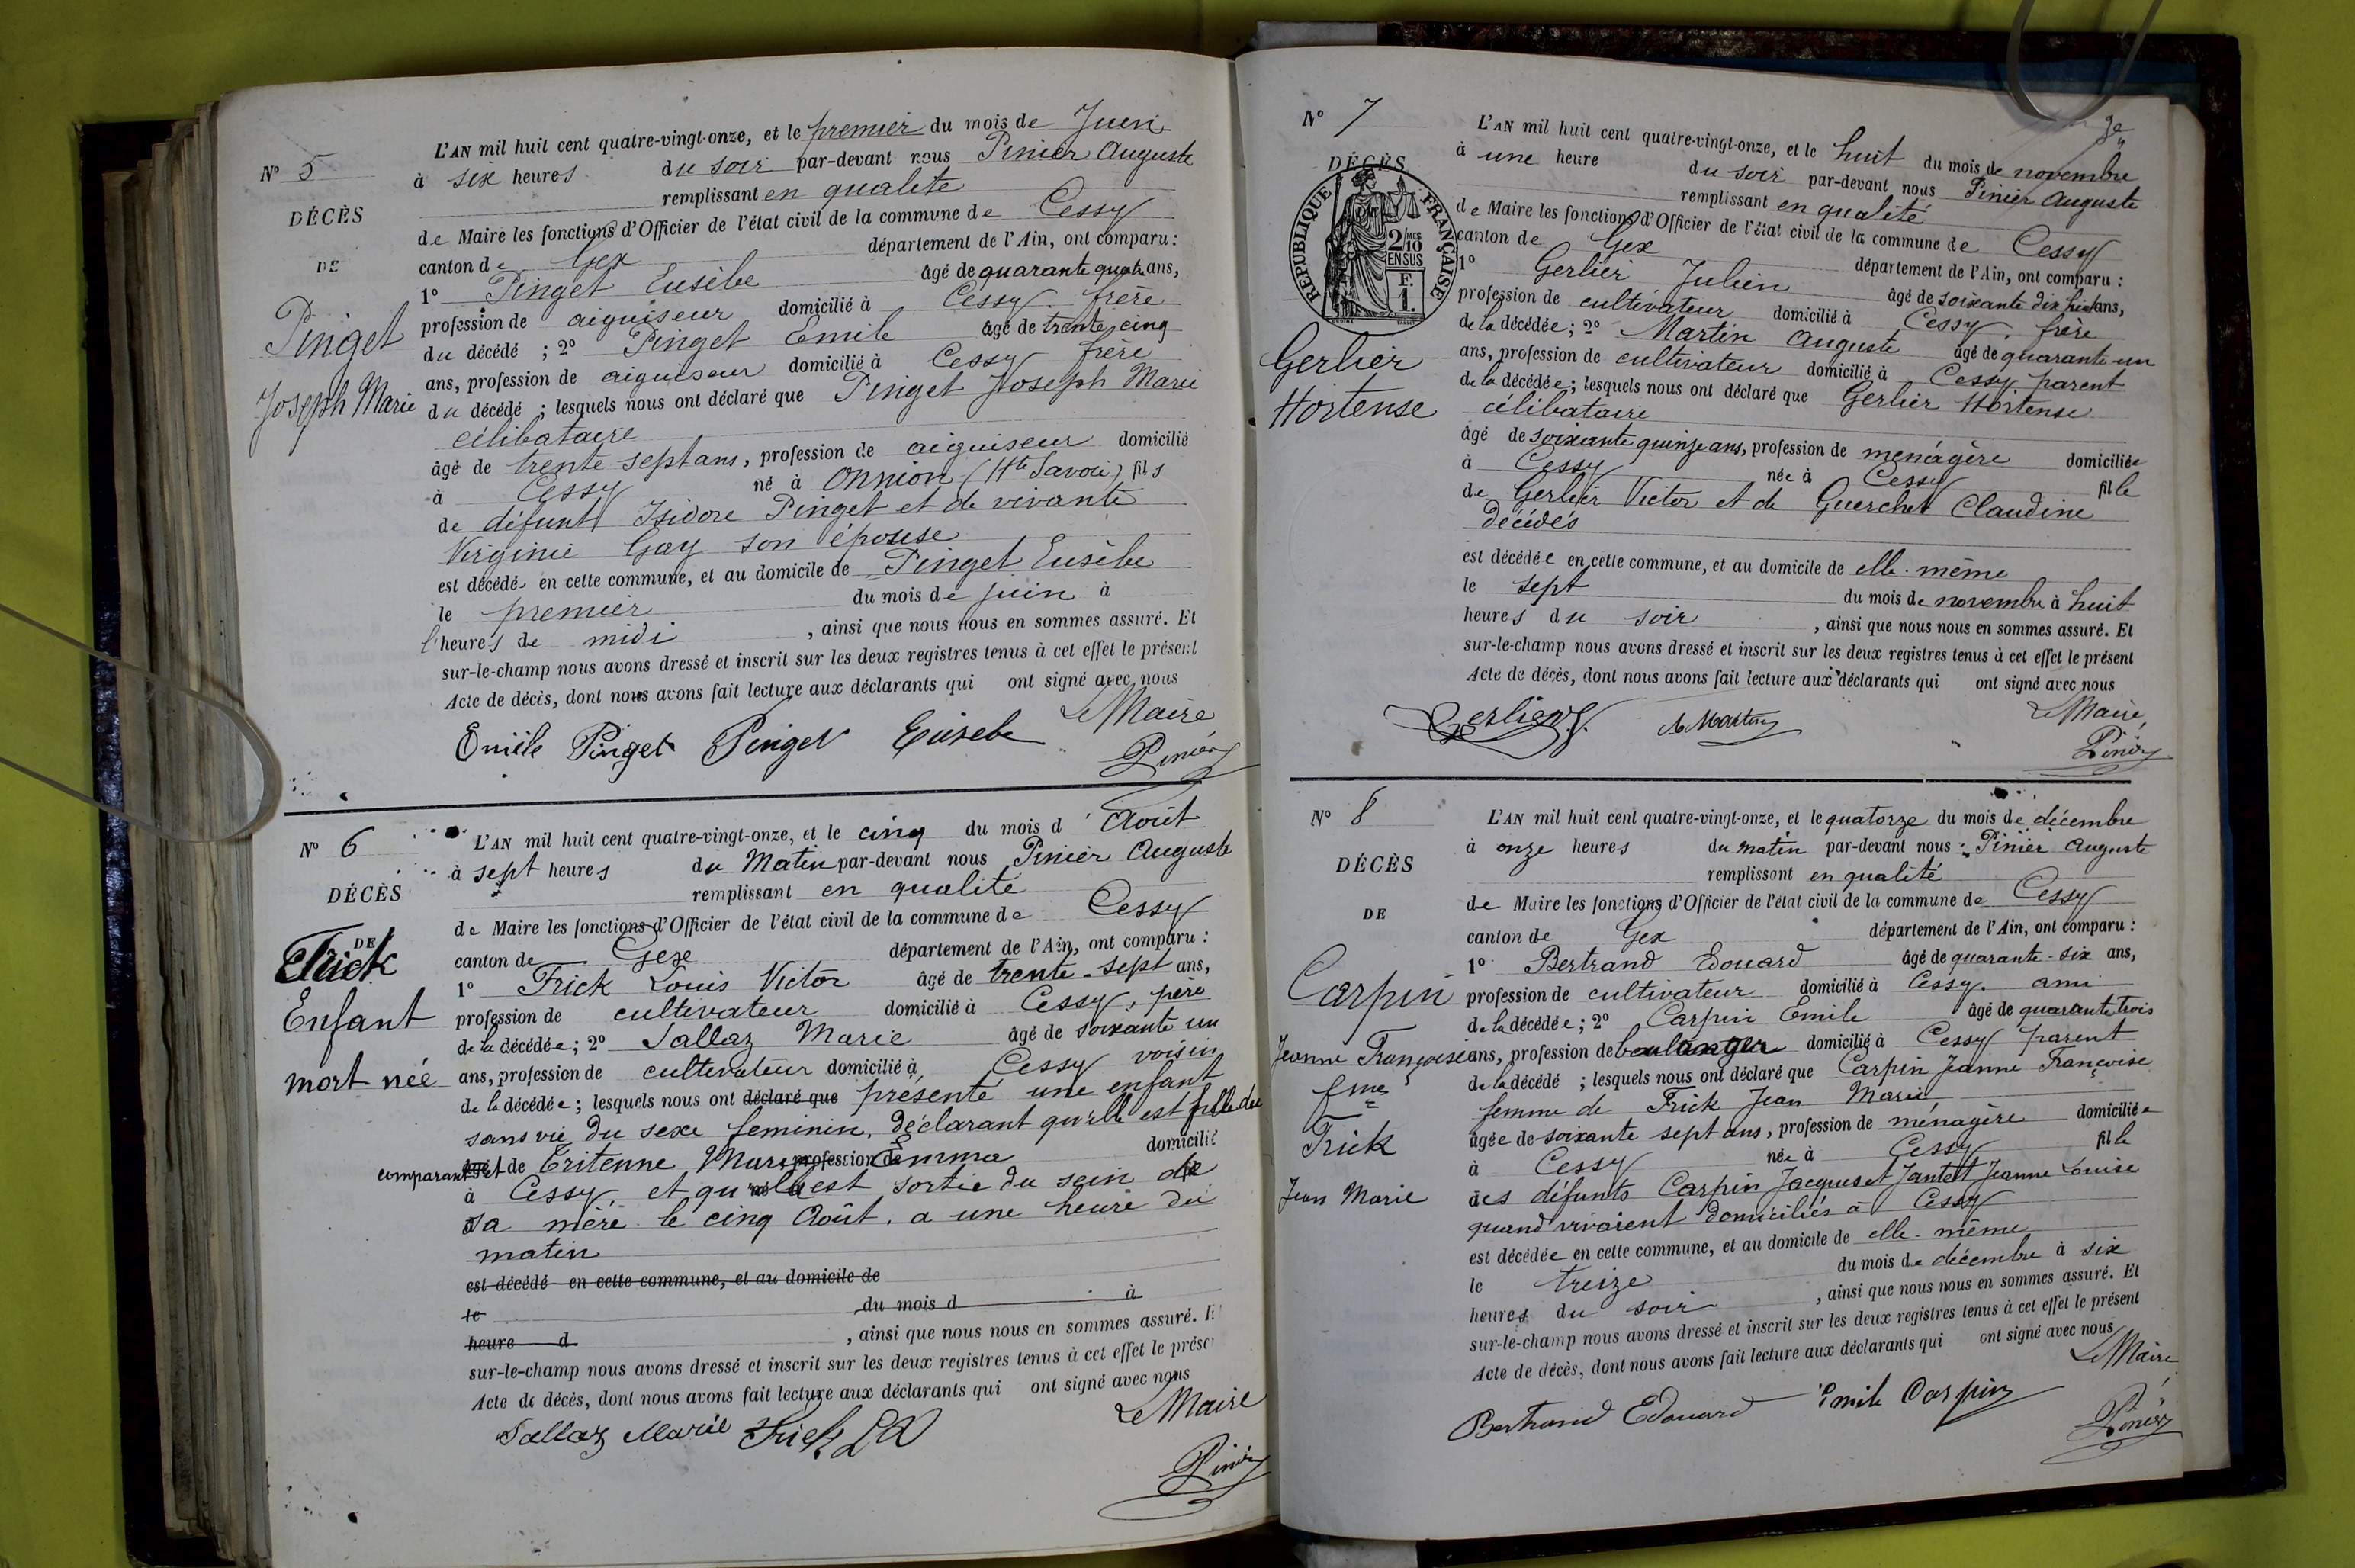 N° 5
DÉCÈS
DE
Pinget
Joseph Marie
L'AN mil huit cent quatre-vingt-onze, et le premier du mois de Juin
à six heures du soir par-devant nous Pinier Auguste
remplissant en qualité
de Maire les fonctions d'Officier de l'état civil de la commune de Cessy
canton de Gex département de l'Ain, ont comparu :
1° Pinget Eusèbe âgé de quarante quatre ans,
profession de aiguiseur domicilié à Cessy frère
du décédé ; 2° Pinget Emile âgé de trente cinq
ans, profession de aiguiseur domicilié à Cessy frère
du décédé ; lesquels nous ont déclaré que Pinget Joseph Marie
célibataire
âgé de trente sept ans, profession de aiguiseur domicilié
à Cessy né à Onnion (Hte Savoie) fils
de défunt Isidore Pinget et de vivante
Virginie Gay son épouse
est décédé en cette commune, et au domicile de Pinget Eusèbe
le premier du mois de juin à
l'heures de midi , ainsi que nous nous en sommes assuré. Et
sur-le-champ nous avons dressé et inscrit sur les deux registres tenus à cet effet le présent
Acte de décès, dont nous avons fait lecture aux déclarants qui ont signé avec nous
Le Maire
Emile Pinget Pinget Eusebe
Pinier
N° 6
DÉCÈS
DE
Frick
Enfant
mort née
L'AN mil huit cent quatre-vingt-onze, et le cinq du mois d'Août
à sept heures du Matin par-devant nous Pinier Auguste
remplissant en qualité
de Maire les fonctions d'Officier de l'état civil de la commune de Cessy
canton de Gex département de l'Ain, ont comparu :
1° Frick Louis Victor âgé de trente-sept ans,
profession de cultivateur domicilié à Cessy, père
de la décédée ; 2° Sallaz Marie âgé de soixante un
ans, profession de cultivateur domicilié à Cessy voisin
de la décédée ; lesquels nous ont déclaré que présenté une enfant
sans vie du sexe feminin, déclarant qu'elle est fille du
comparant et de Tritenne Marie profession de Emma domicilié
à Cessy, et qu'elle est sortie du sein de
sa mère le cinq Août, a une heure du
matin
est décédé en cette commune, et au domicile de
le du mois d à
heure d , ainsi que nous nous en sommes assuré. E
sur-le-champ nous avons dressé et inscrit sur les deux registres tenus à cet effet le prése
Acte de décès, dont nous avons fait lecture aux déclarants qui ont signé avec nous
Le Maire
Sallaz Marie Frick LV
Pinier
N° 7
DÉCÈS
RÉPUBLIQUE FRANÇAISE
2/10 MES
EN SUS
F.
1.
Gerlier
Hortense
L'AN mil huit cent quatre-vingt-onze, et le huit du mois de novembre
à une heure du soir par-devant nous Pinier Auguste
remplissant en qualité
de Maire les fonctions d'Officier de l'état civil de la commune de Cessy
canton de Gex département de l'Ain, ont comparu :
1° Gerlier Julien âgé de soixante dix huit ans,
profession de cultivateur domicilié à Cessy, frère
de la décédée ; 2° Martin Auguste âgé de quarante un
ans, profession de cultivateur domicilié à Cessy parent
de la décédée ; lesquels nous ont déclaré que Gerlier Hortense
célibataire
âgé de soixante quinze ans, profession de menágère domiciliée
à Cessy née à Cessy fille
de Gerlier Victor et de Guerchet Claudine
décédés
est décédée en cette commune, et au domicile de elle-même
le sept du mois de novembre à huit
heures du soir , ainsi que nous nous en sommes assuré. Et
sur-le-champ nous avons dressé et inscrit sur les deux registres tenus à cet effet le présent
Acte de décès, dont nous avons fait lecture aux déclarants qui ont signé avec nous
Le Maire,
Gerlier J. A Martin
Pinier
N° 8
DÉCÈS
DE
Carpin
Jeanne Françoise
fme
Frick
Jean Marie
L'AN mil huit cent quatre-vingt-onze, et le quatorze du mois de décembre
à onze heures du matin par-devant nous Pinier Auguste
remplissant en qualité
de Maire les fonctions d'Officier de l'état civil de la commune de Cessy
canton de Gex département de l'Ain, ont comparu :
1° Bertrand Edouard âgé de quarante-six ans,
profession de cultivateur domicilié à Cessy. ami
de la décédée ; 2° Carpin Emile âgé de quarante trois
ans, profession de boulanger domicilié à Cessy parent
de la décédé ; lesquels nous ont déclaré que Carpin Jeanne Françoise
femme de Frick Jean Marie
âgée de soixante sept ans, profession de ménagère domiciliée
à Cessy née à Cessy fille
des défunts Carpin Jacques et Jantet Jeanne Louise
quand vivaient domiciliés à Cessy
est décédée en cette commune, et au domicile de elle-même
le treize du mois de décembre à six
heures du soir , ainsi que nous nous en sommes assuré. Et
sur-le-champ nous avons dressé et inscrit sur les deux registres tenus à cet effet le présent
Acte de décès, dont nous avons fait lecture aux déclarants qui ont signé avec nous
Le Maire
Bertrand Edouard Emile Carpin
Pinier